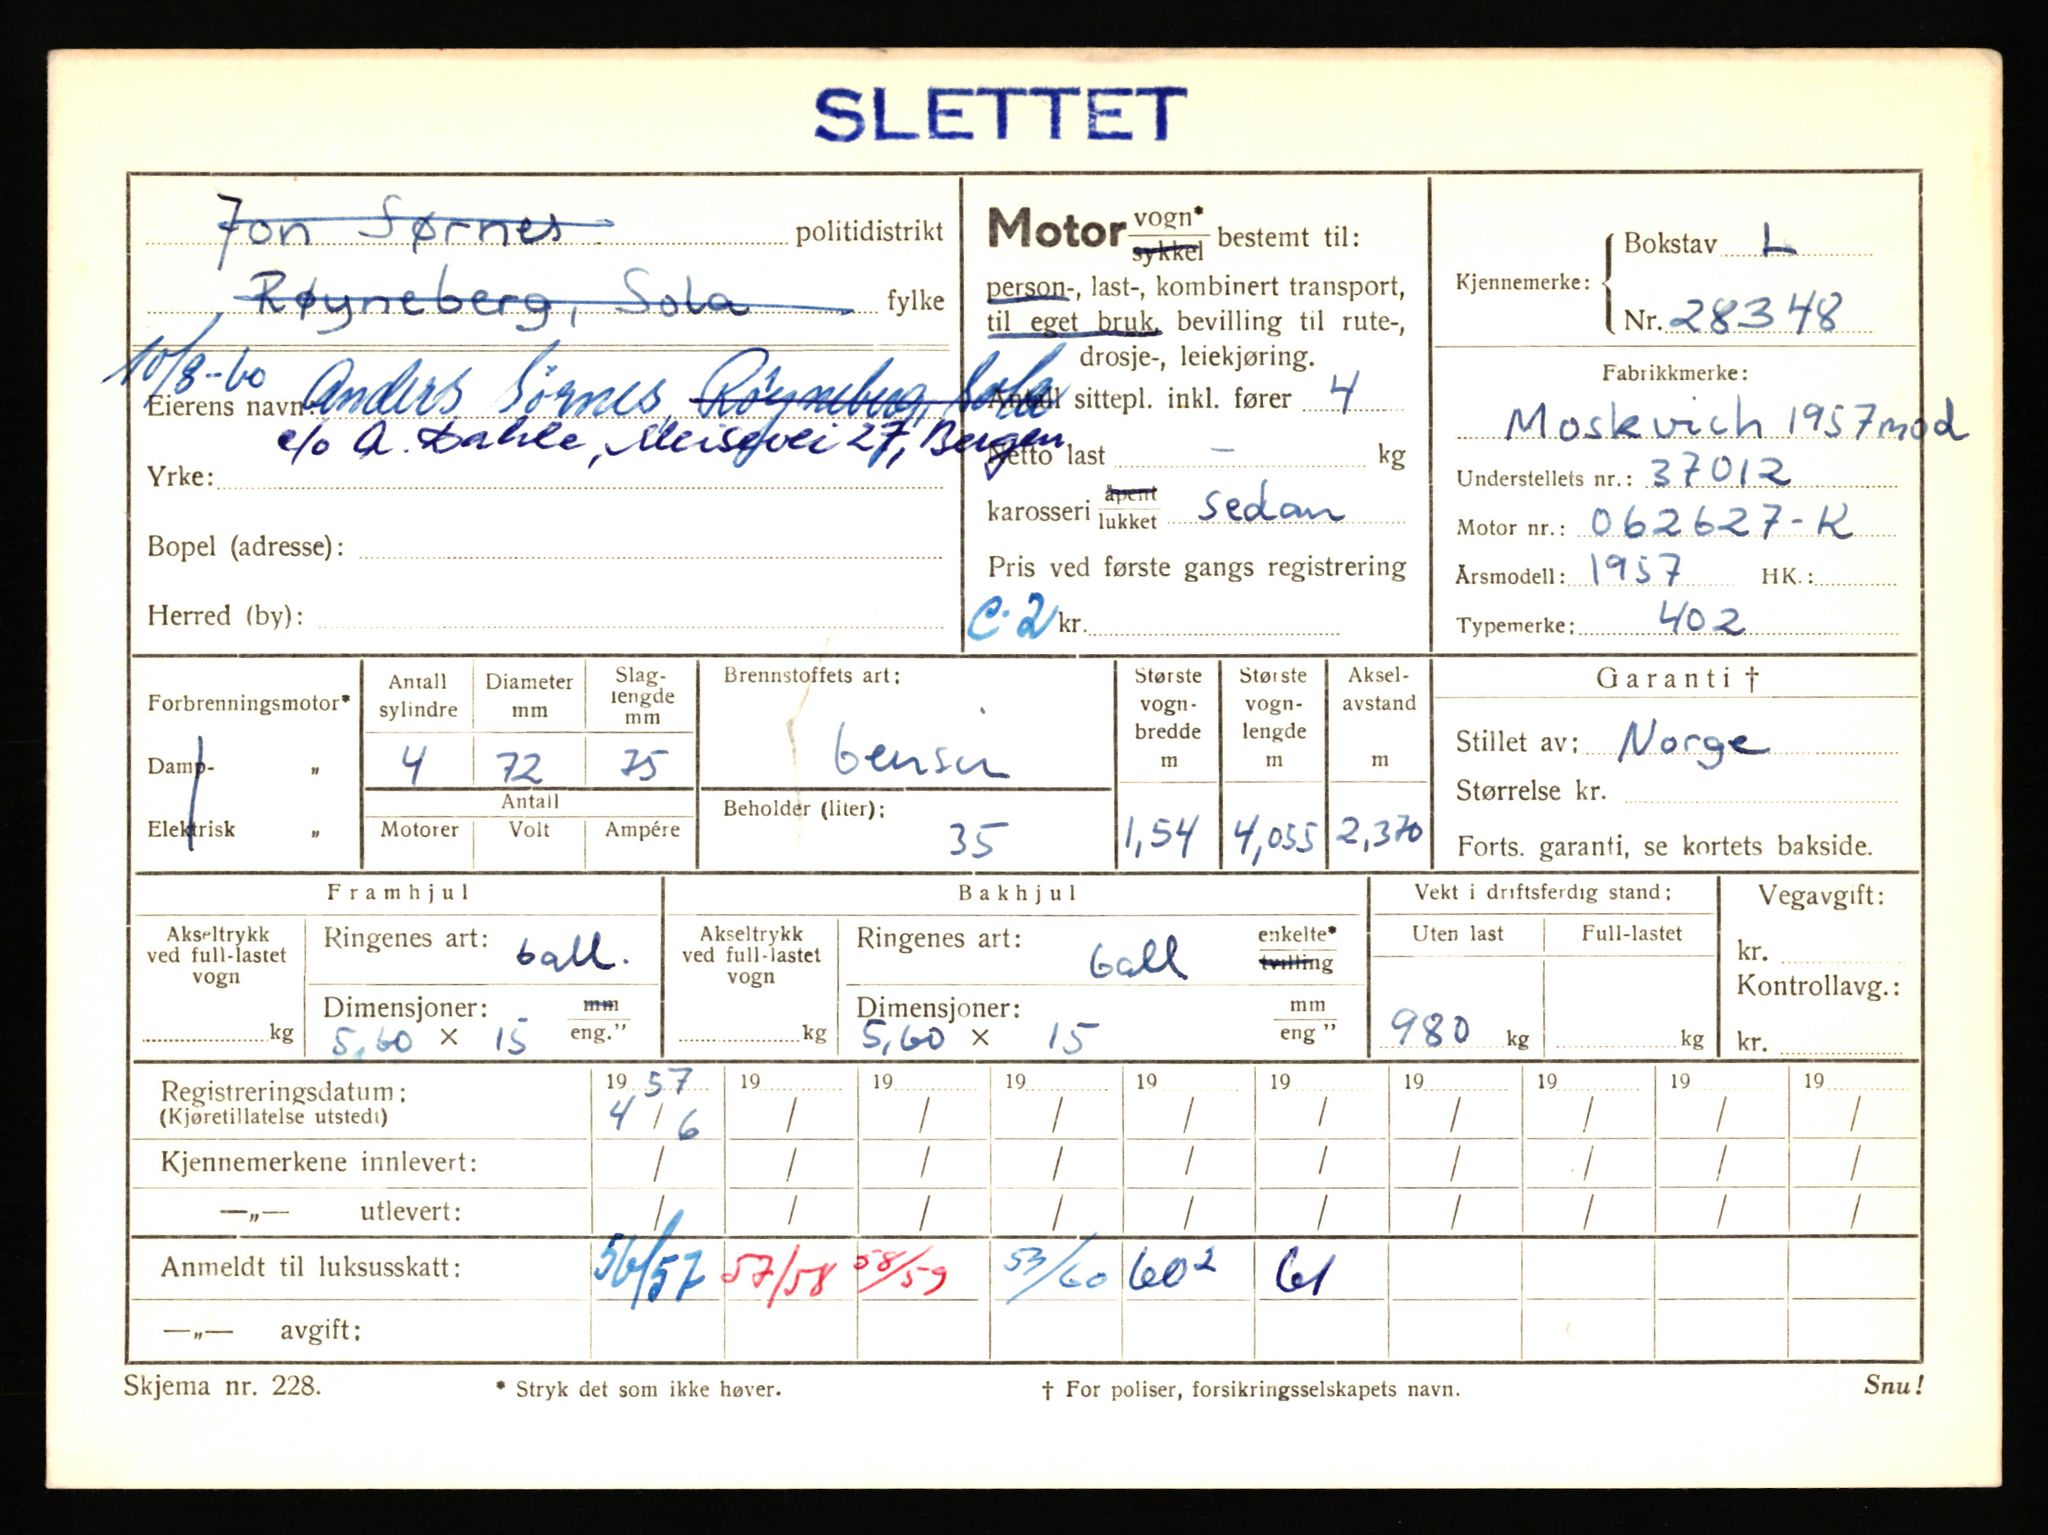 SLETTET
Jon Sørnes politidistrikt
Røyneberg, Sola fylke
10/8-60 Anders Sörnes, Röyneberg, Sola
Eierens navn:
c/o A. Dahle, Meisevei 27, Bergen
Yrke:
Bopel (adresse):
Herred (by):
Motor vogn* sykkel bestemt til:
person-, last-, kombinert transport,
til eget bruk, bevilling til rute-,
drosje-, leiekjøring.
Antall sittepl. inkl. fører 4
Netto last - kg
karosseri åpent lukket sedan
Pris ved første gangs registrering
C-2 kr.
Kjennemerke: Bokstav L
Nr. 28348
Fabrikkmerke:
Moskvich 1957mod
Understellets nr.: 37012
Motor nr.: 062627-K
Årsmodell: 1957 HK.:
Typemerke: 402
Forbrenningsmotor*
Damp- „
Elektrisk „
Antall sylindre 4
Diameter mm 72
Slaglengde mm 75
Antall
Motorer Volt Ampére
Brennstoffets art:
bensin
Beholder (liter):
35
Største vognbredde m 1,54
Største vognlengde m 4,055
Akselavstand m 2,370
Garanti †
Stillet av: Norge
Størrelse kr.
Forts. garanti, se kortets bakside.
Framhjul
Akseltrykk ved full-lastet vogn
kg
Ringenes art: ball.
Dimensjoner: mm eng."
5,60 × 15
Bakhjul
Akseltrykk ved full-lastet vogn
kg
Ringenes art: ball enkelte* tvilling
Dimensjoner: mm eng "
5,60 × 15
Vekt i driftsferdig stand:
Uten last Full-lastet
980 kg kg
Vegavgift:
kr.
Kontrollavg.:
kr.
Registreringsdatum: 19 57 19 19 19 19 19 19 19 19 19
(Kjøretillatelse utstedt) 4 / 6 / / / / / / / / /
Kjennemerkene innlevert: / / / / / / / / / /
—„— utlevert: / / / / / / / / / /
Anmeldt til luksusskatt: 56/57 57/58 58/59 53/60 60² 61
—„— avgift:
Skjema nr. 228. * Stryk det som ikke høver. † For poliser, forsikringsselskapets navn. Snu!